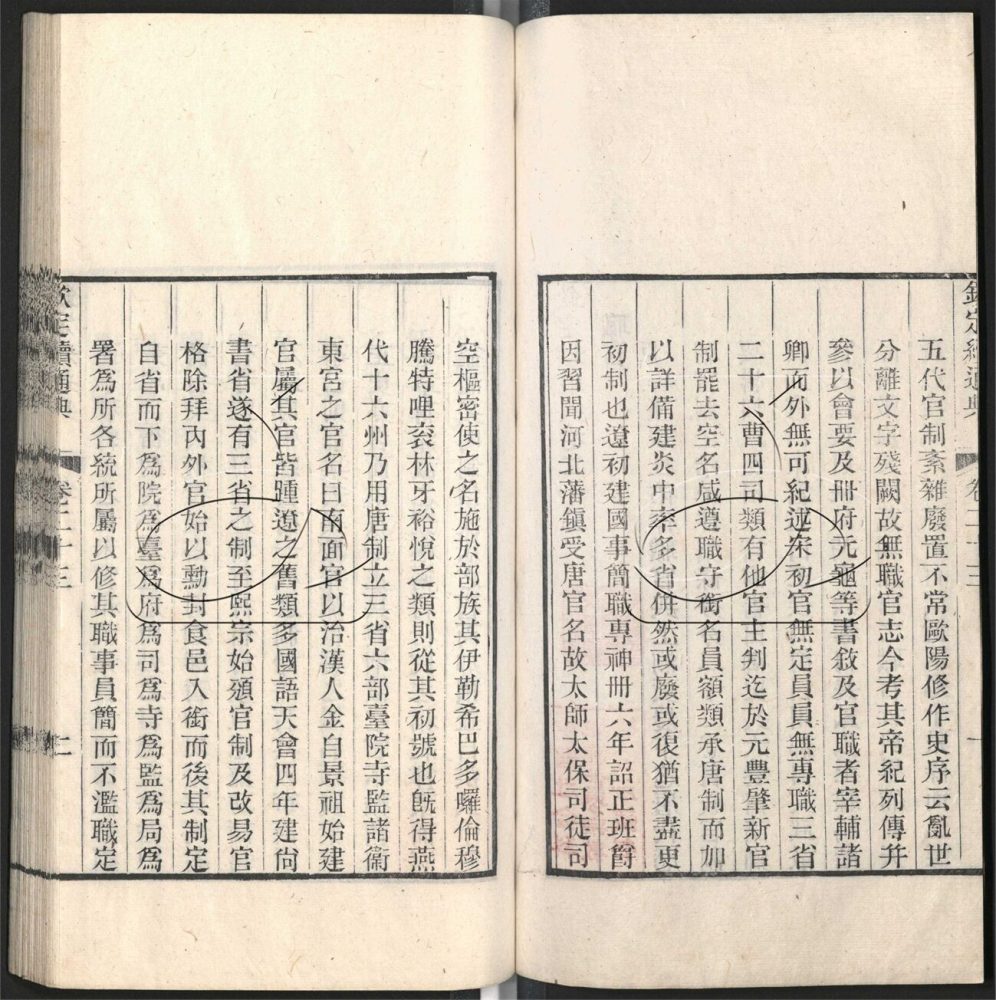 欽定續通典 卷二十三 一
五代官制紊雜廢置不常歐陽修作史序云亂世
分離文字殘闕故無職官志今考其帝紀列傳幷
參以會要及冊府元龜等書敘及官職者宰輔諸
卿而外無可紀述宋初官無定員員無專職三省
二十六曹四司類有他官主判迄於元豐肇新官
制罷去空名咸遵職守銜名員額類承唐制而加
以詳備建炎中率多省併然或廢或復猶不盡更
初制也遼初建國事簡職專神冊六年詔正班爵
因習聞河北藩鎮受唐官名故太師太保司徒司
空樞密使之名施於部族其伊勒希巴多囉倫穆
騰特哩袞林牙裕悅之類則從其初號也旣得燕
代十六州乃用唐制立三省六部臺院寺監諸衞
東宮之官名曰南面官以治漢人金自景祖始建
官屬其官皆踵遼之舊類多國語天會四年建尙
書省遂有三省之制至熙宗始頒官制及改易官
格除拜內外官始以勳封食邑入銜而後其制定
自省而下爲院爲臺爲府爲司爲寺爲監爲局爲
署爲所各統所屬以修其職事員簡而不濫職定
欽定續通典 卷二十三 二